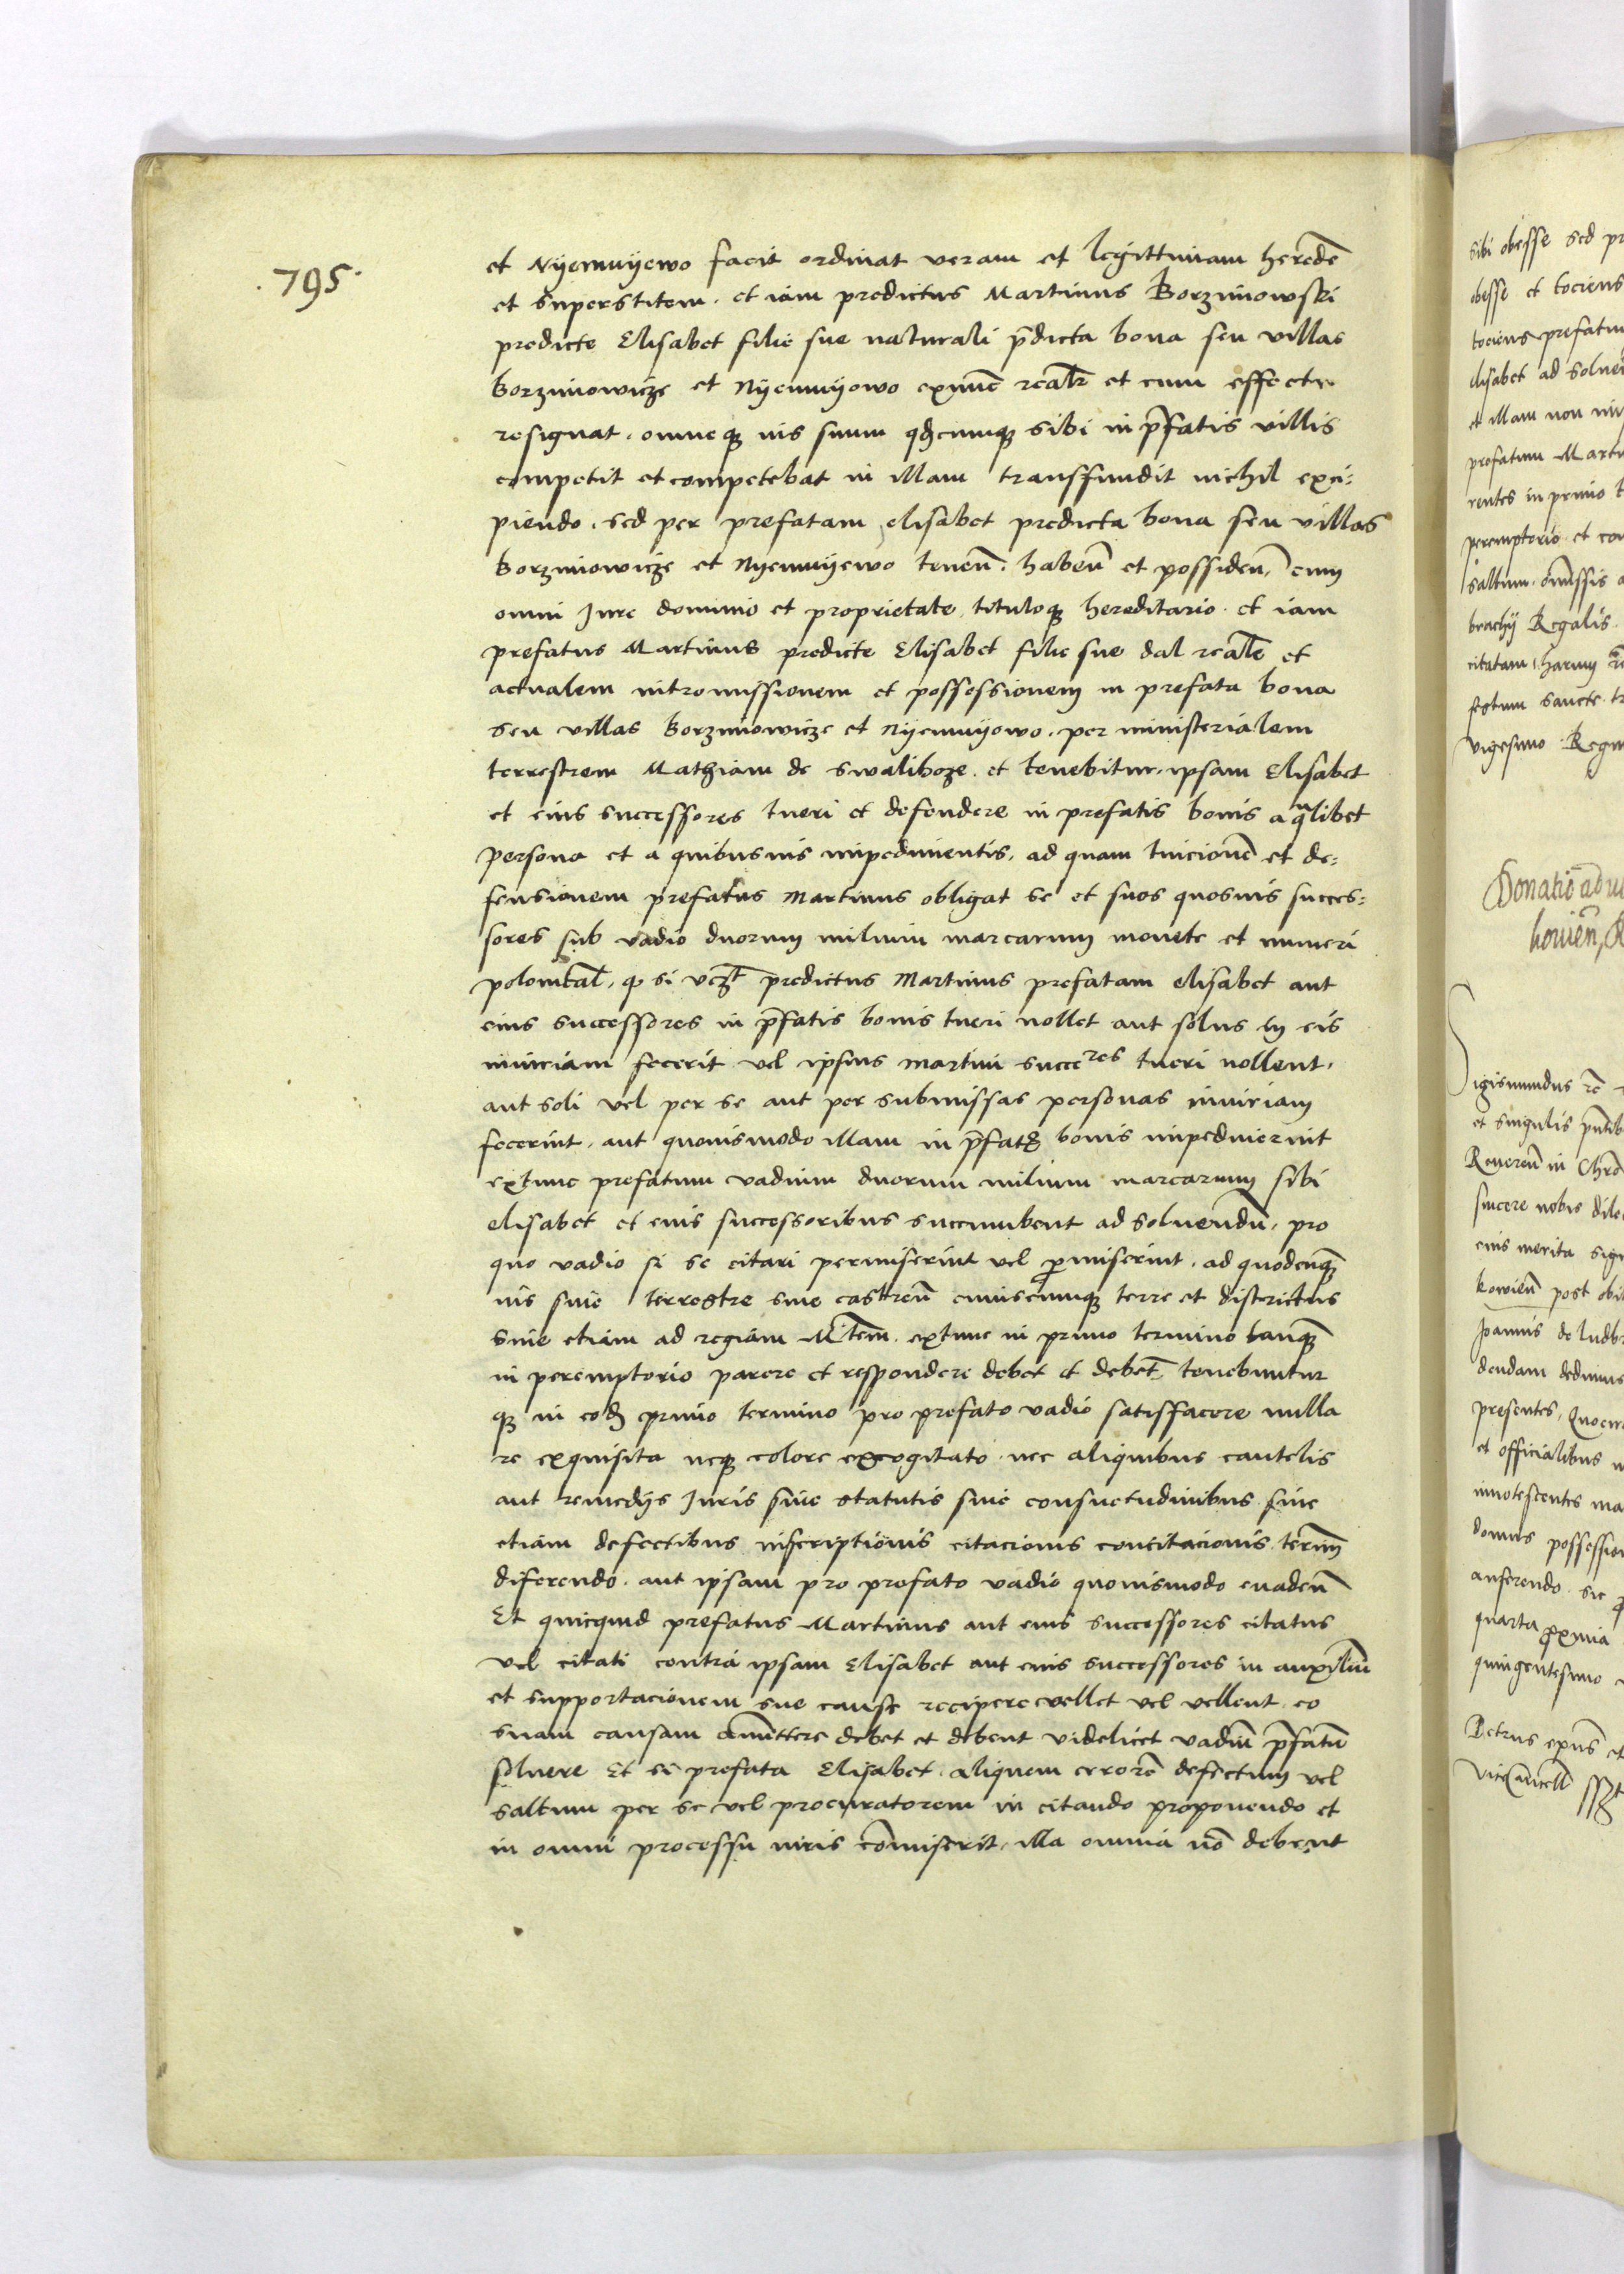 .795.
et Nyemyyewo facit ordinat veram et legittimam heredē
et superstitem. et iam predictus Martinus Borzimowski
predicte Elisabet filie sue naturali p̄dicta bona seu villas
Borzimowicze et Nyemyyewo exnūc realr̄ et cum effectu
resignat. omneqʒ ius suum qdcumqʒ sibi in p̄fatis villis
competit et competebat in illam transfundit nichil exci-
piendo. sed per prefatam elisabet predicta bona seu villas
Borzimowicze et Nyemyyewo tenen̄. haben̄ et possiden̄, cum
omni Jure dominio et proprietate tituloqʒ hereditario. et iam
prefatus Martinus predicte Elisabet filie sue dal realē et
actualem intromissionem et possessionem in prefata bona
seu villas Borzimowicze et Nyemyyowo. per ministerialem
terrestrem Mathiam de Swaliboze. et tenebitur ipsam Elisabet
et eius successores tueri et defendere in prefatis bonis a qualibet
persona et a quibusuis impedimentis, ad quam tuicionē et de-
fensionem prefatus Martinus obligat se et suos quosuis succes-
sores sub vadio duorum milium marcarum monete et numeri
polonical̄. qʒ si predictus Martinus prefatam elisabet aut
eius successores in p̄fatis bonis tueri nollet aut solus in eis
iniuriam fecerit vel ipsius Martini succeres tueri nollent.
aut soli vel per se aut per submissas personas iniuriam
fecerint. aut quouismodo illam in p̄fatis bonis impedierint
extunc prefatum vadium duorum milium marcarum sibi
elisabet et eius successoribus succumbent ad soluendū, pro
quo vadio si se citari permiserint vel p̄miserint. ad quodcūqʒ
ius siue terrestre siue castren̄ cuiuscumqʒ terre et districtus
siue etiam ad regiam Mtem̄. extunc in primo termino tanqʒ
in peremptorio parere et respondere debet et debēt tenebuntur
qʒ in eod primo termino pro prefato vadio satisfacere nulla
re exquisita neqʒ colore excogitato nec aliquibus cautelis
aut remedijs Juris siue statutis siue consuetudinibus siue
etiam defectibus inscriptionis citacionis concitacionis term̄
diferendo. aut ipsam pro prefato vadio quouismodo euaden̄
Et quicquid prefatus Martinus aut eius successores citatus
vel citati contra ipsam Elisabet aut eius successores in auxiliū
et supportacionem sue cause recipere vellet vel vellent eo
suam causam amittere debet et debent videlicet vadiū p̄fatū
soluere Et si prefata Elisabet aliquem errorē defectum vel
saltum per se vel procuratorem in citando proponendo et
in omni processu iuris cōmiserit, illa omnia nō debent
sibi obesse sed
obesse et tociens
tociens prefatum
elisabet ad
et illam non
prefatum
rentes in primo
peremptorio et
saltum. omissis
brachij Regalis.
citatam. harum
festum sancte
vigesimo Regni
Donatio ad
howien̄,
Sigismundus rē
et singulis
Reueren̄ in Chro
sincere nobis
eius merita
kowien̄ post
Joannis de
dendam dedimus
presentes,
et officialibus
innotescentes
domus possession
auferendo. sic
quarta proxima
quingentesimo
Petrus ep̄us et
Vicecancell